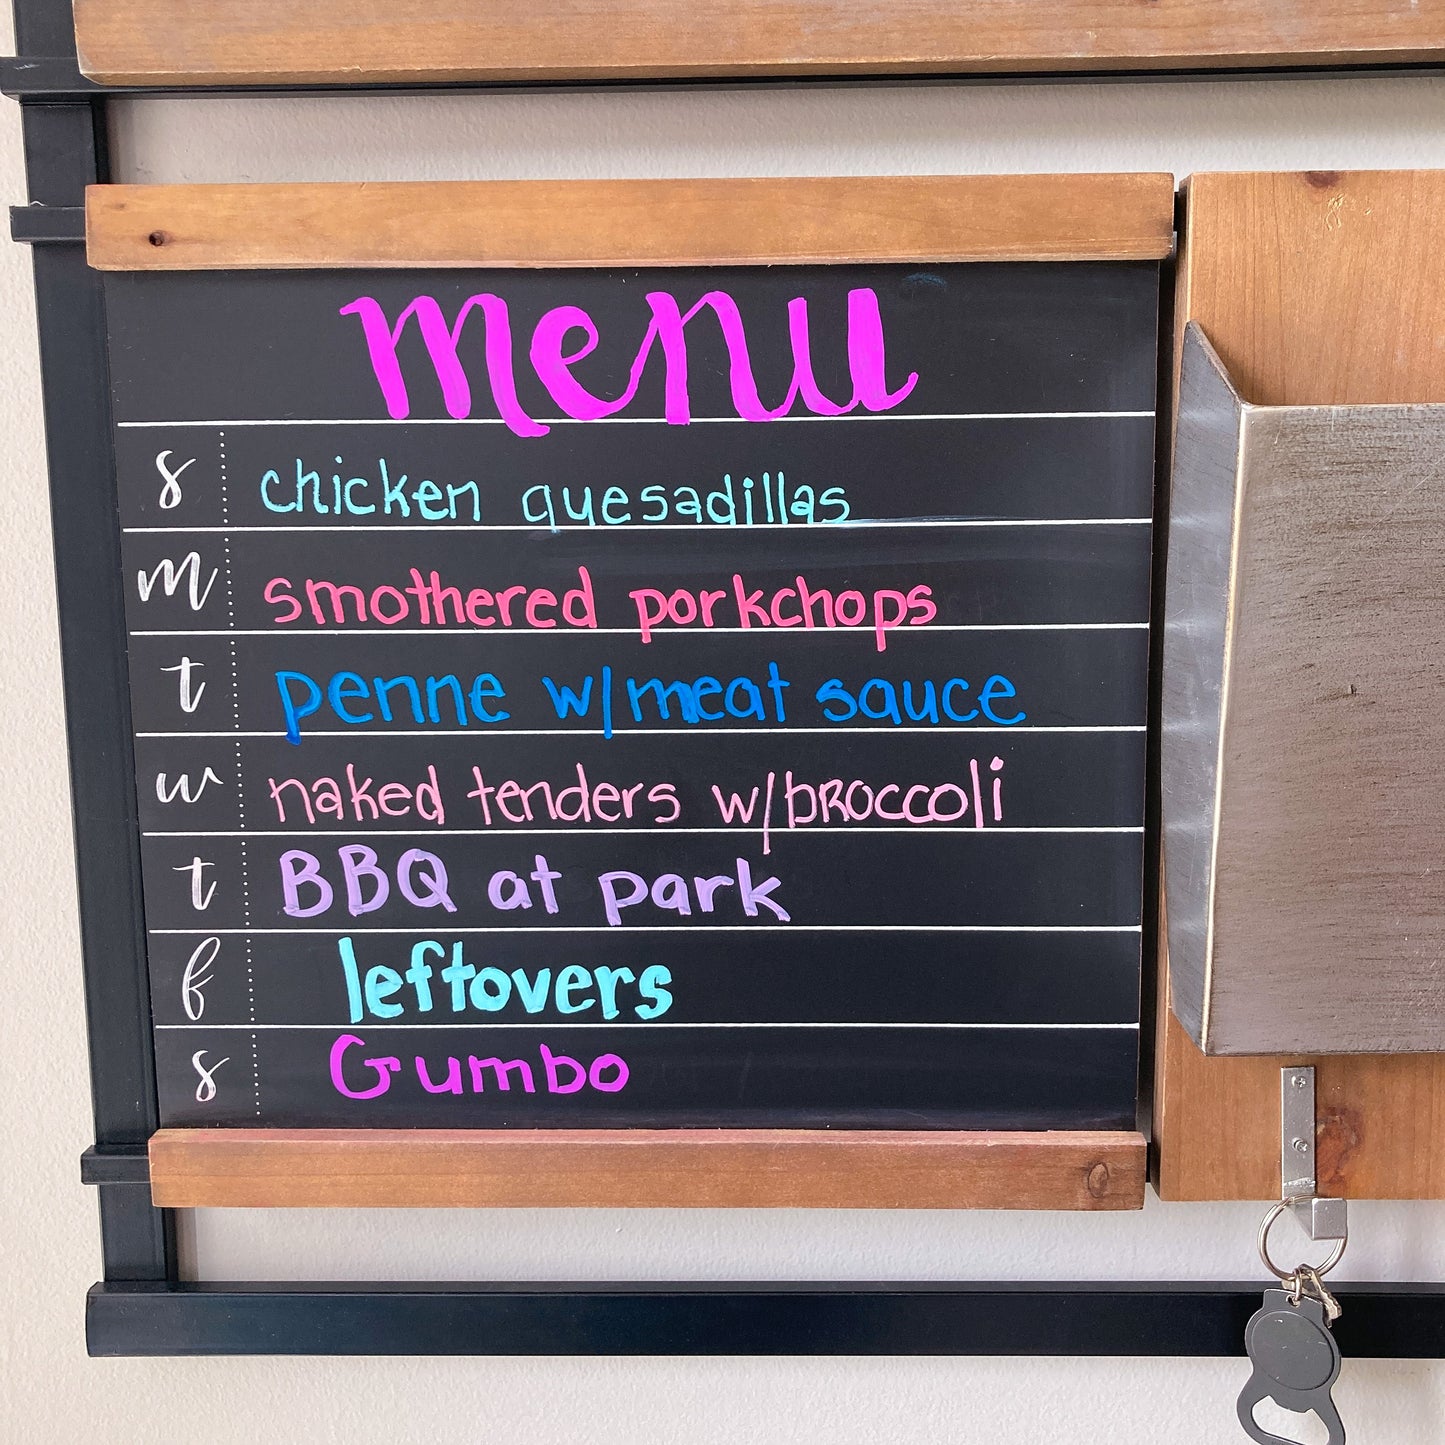 menu
s chicken quesadillas
m smothered porkchops
t penne w/meat sauce
w naked tenders w/broccoli
t BBQ at park
f leftovers
s Gumbo